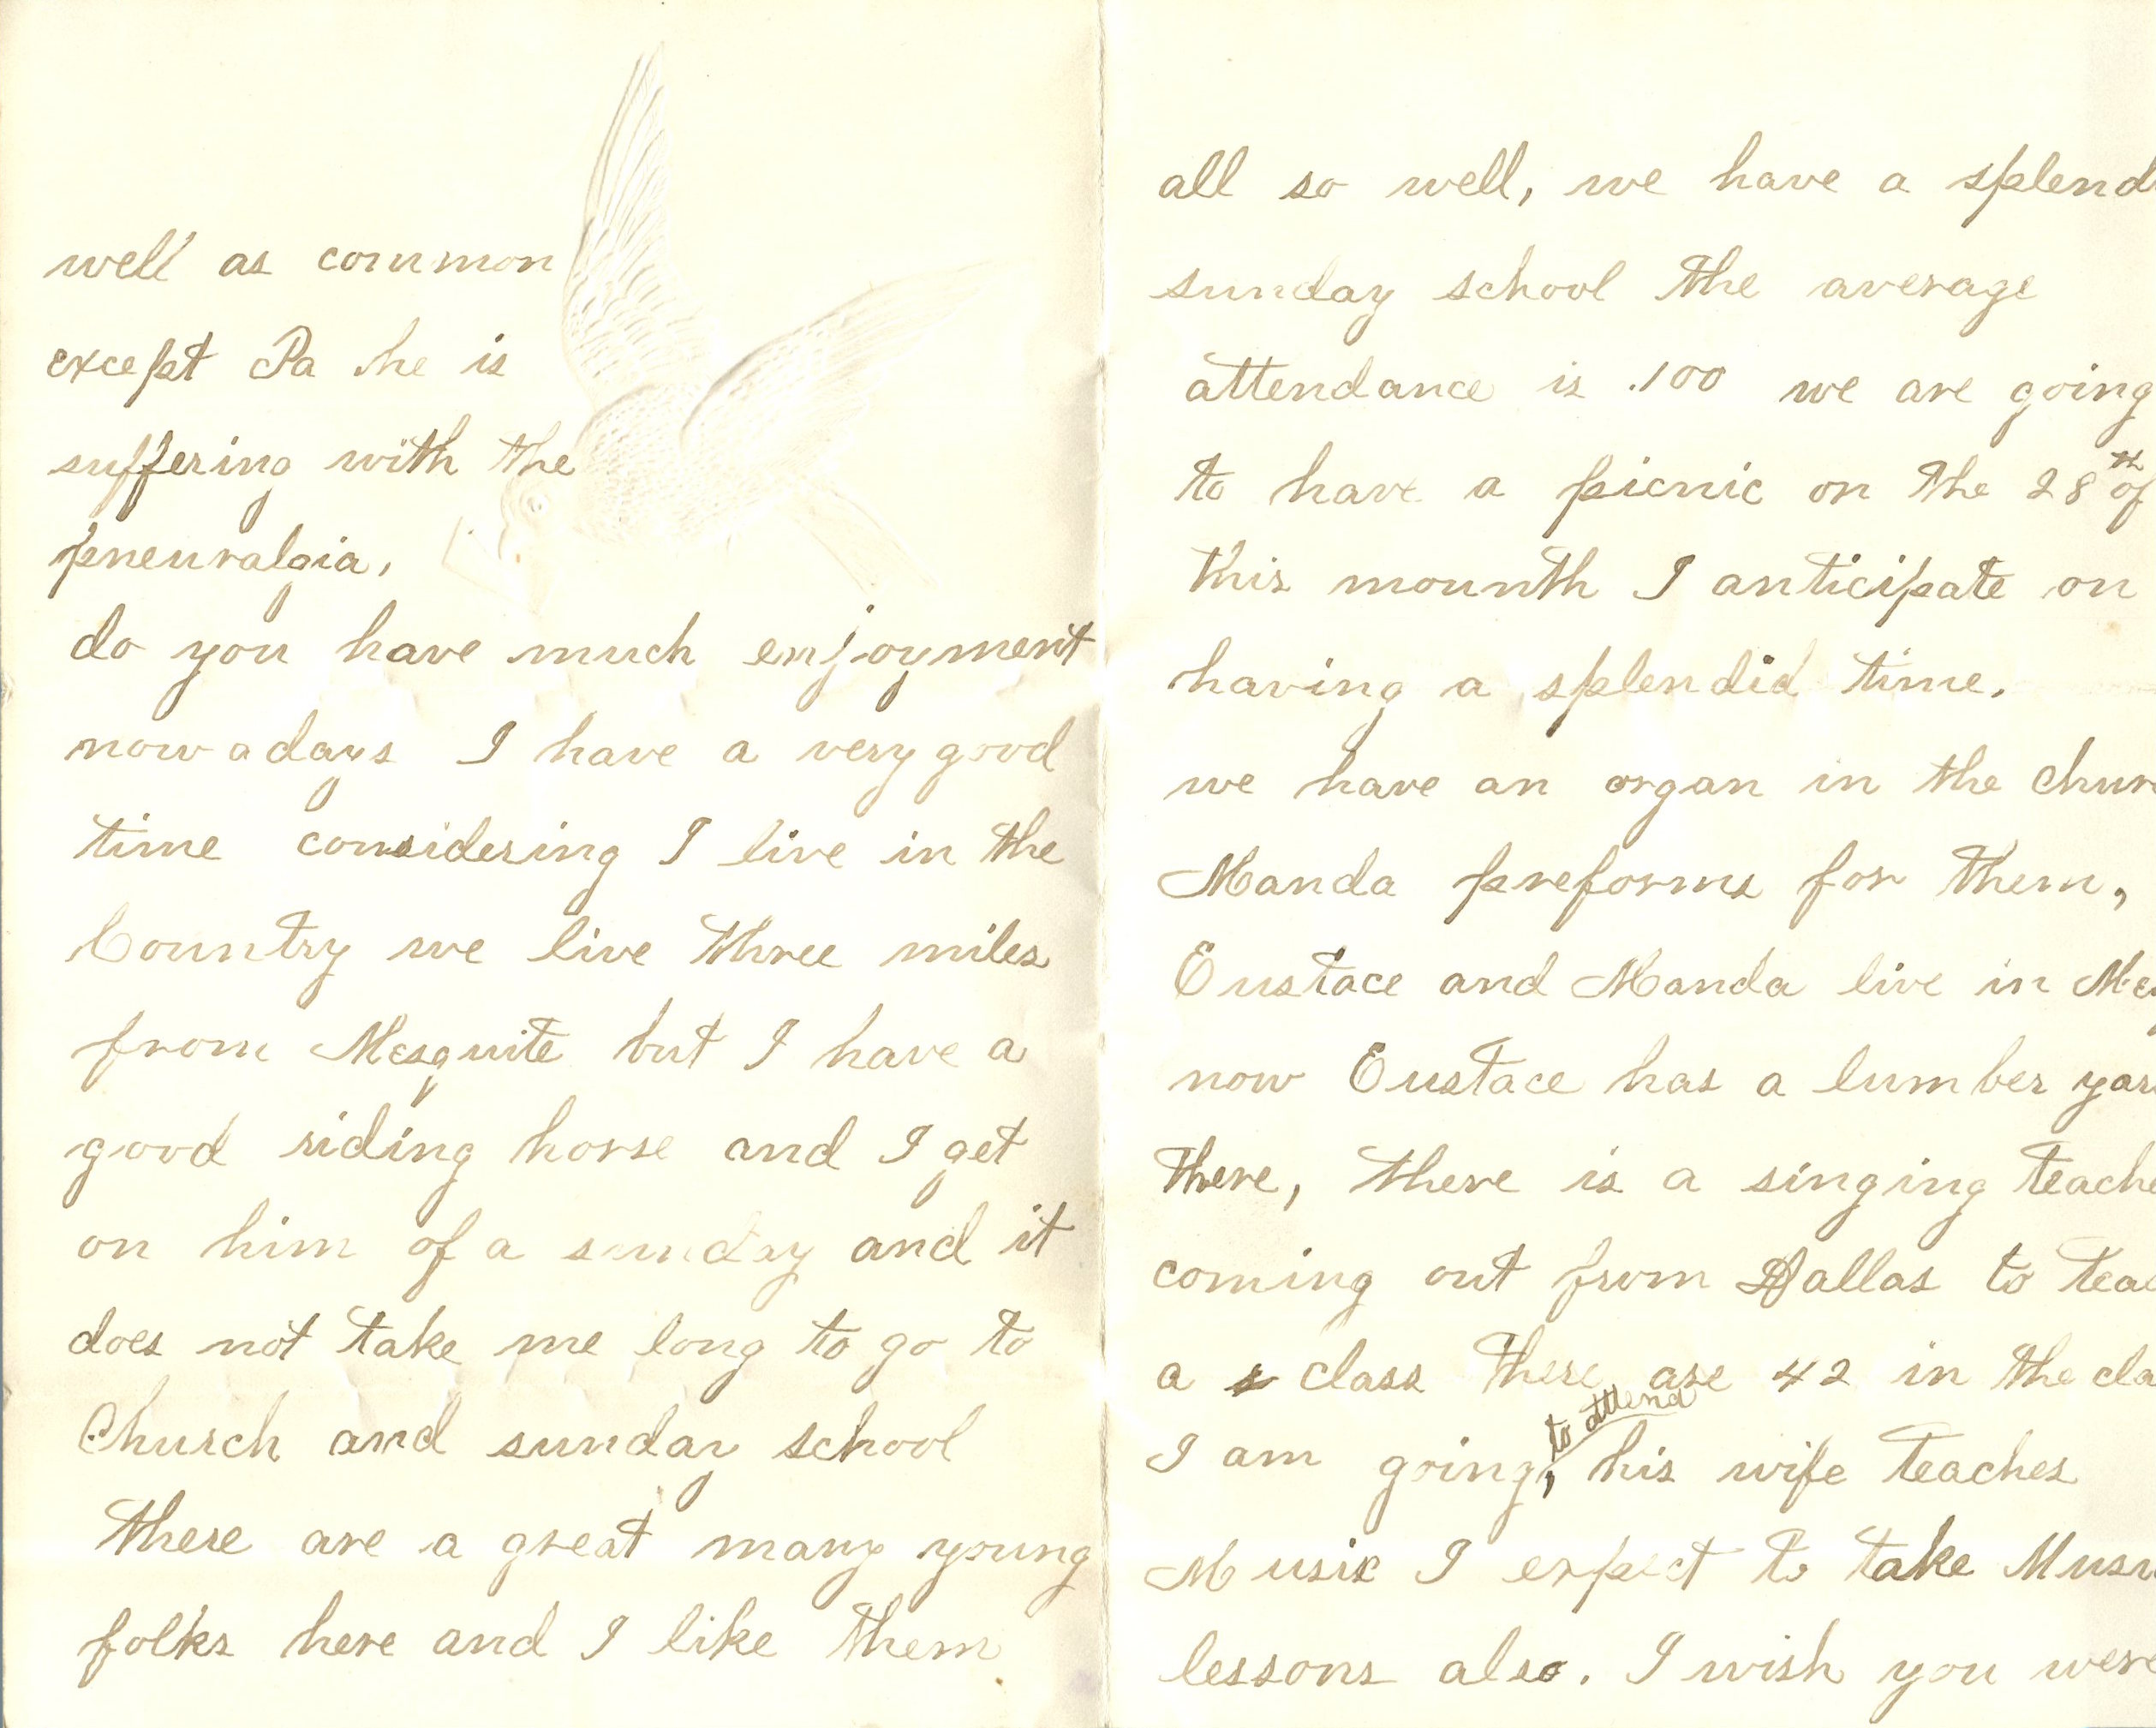 well as common
except Pa he is
suffering with the
pneuralgia,
do you have much enjoyment
now a days I have a very good
time considering I live in the
Country we live three miles
from Mesquite but I have a
good riding horse and I get
on him of a sunday and it
does not take me long to go to
Church and sunday school
there are a great many young
folks here and I like them
all so well, we have a splend
sunday school the average
attendance is .100 we are going
to have a picnic on the 28th of
this mounth I anticipate on
having a splendid time.
we have an organ in the Chur
Manda preforms for them,
Eustace and Manda live in Mes
now Eustace has a lumber yar
there, there is a singing teache
coming out from Dallas to tea
a s class there are 42 in the cla
to attend
I am going, his wife teaches
Music I expect to take Musi
lessons also. I wish you were